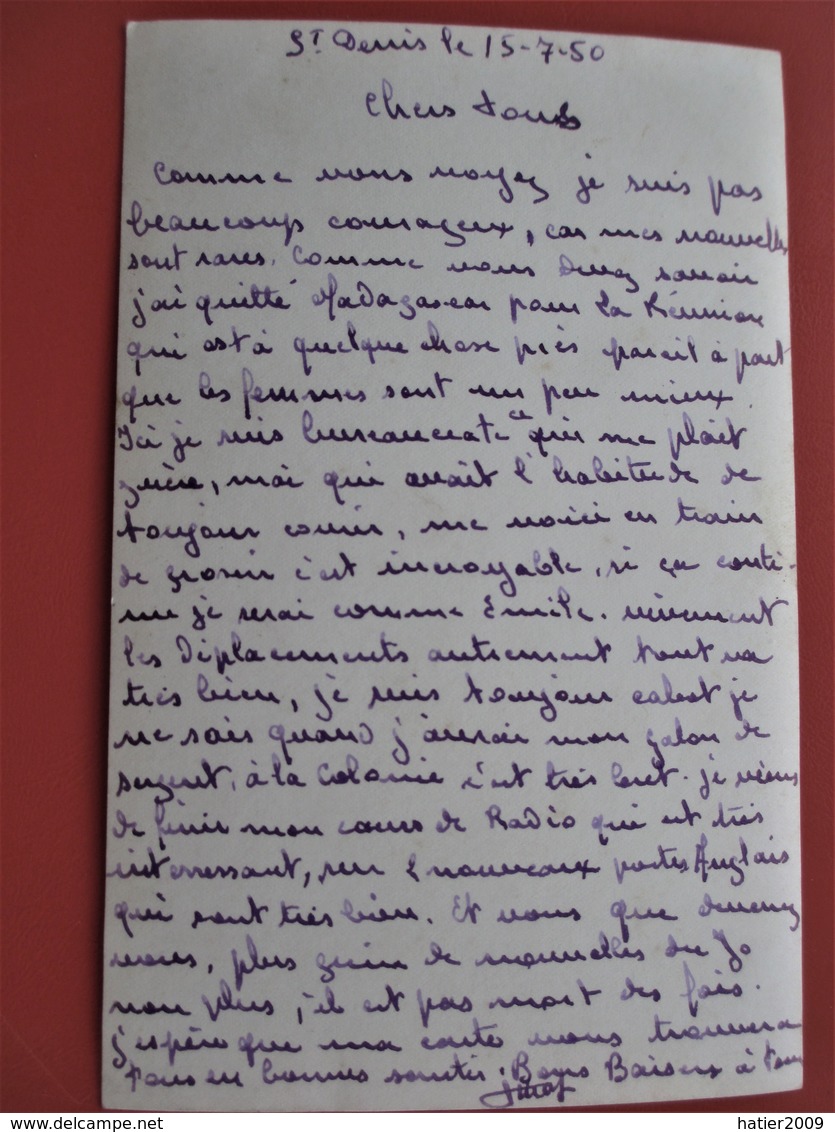 St Denis le 15-7-50
Chers tous
Comme vous voyez je suis pas
beaucoup courageux, car mes nouvelles
sont rares. Comme vous devez savoir
j'ai quitté Madagascar pour La Réunion
qui est à quelque chose près pareil à part
que les femmes sont un peu mieux.
Ici je suis bureaucrate ce qui me plait
guère, moi qui avait l'habitude de
toujour courir, me voici en train
de grossir c'est incroyable, si ça conti-
nu je serai comme Emile. vivement
les Déplacements autrement tout va
très bien, je suis toujour cabot je
ne sais quand j'aurai mon galon de
sergent, à la Colonie c'est très lent. je viens
de finir mon cours de Radio qui est très
interressant, sur 2 nouveaux postes Anglais
qui sont très bien. Et vous que devenez
vous, plus guère de nouvelles du Jo
non plus, il est pas mort des fois.
j'espère que ma carte vous trouvera
tous en bonnes santés. Bons Baisers à tous
delcampe.net
hatier2009